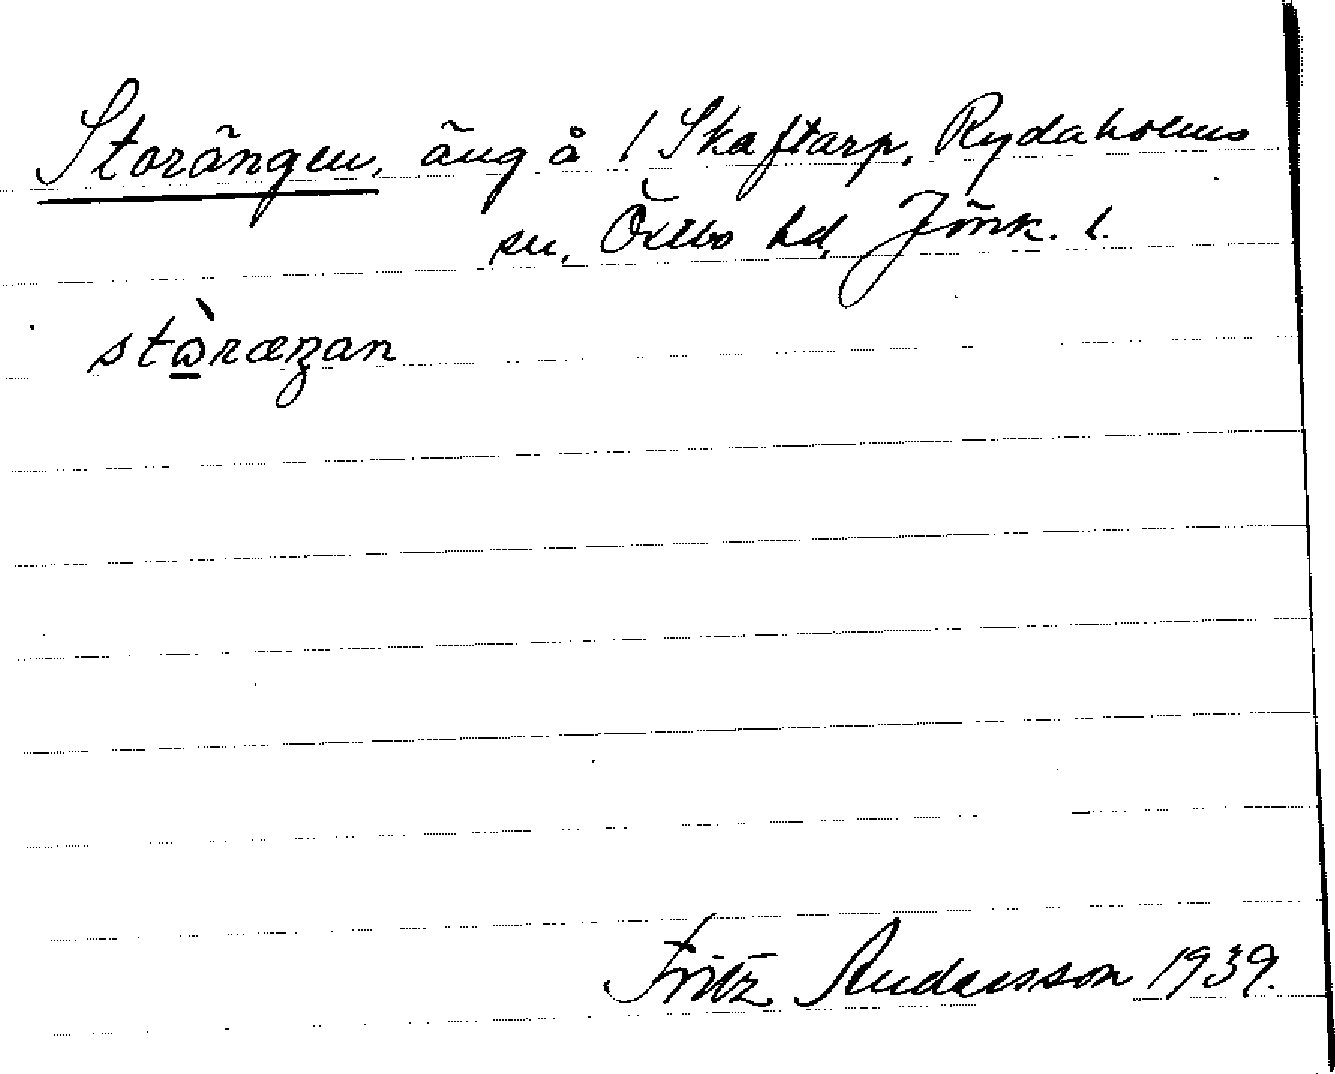 Storängen, äng å 1 Skaftarp, Rydaholms
sn, Östbo hd, Jönk. l.
stɷ̀ræŋan
Fritz Andersson 1939.